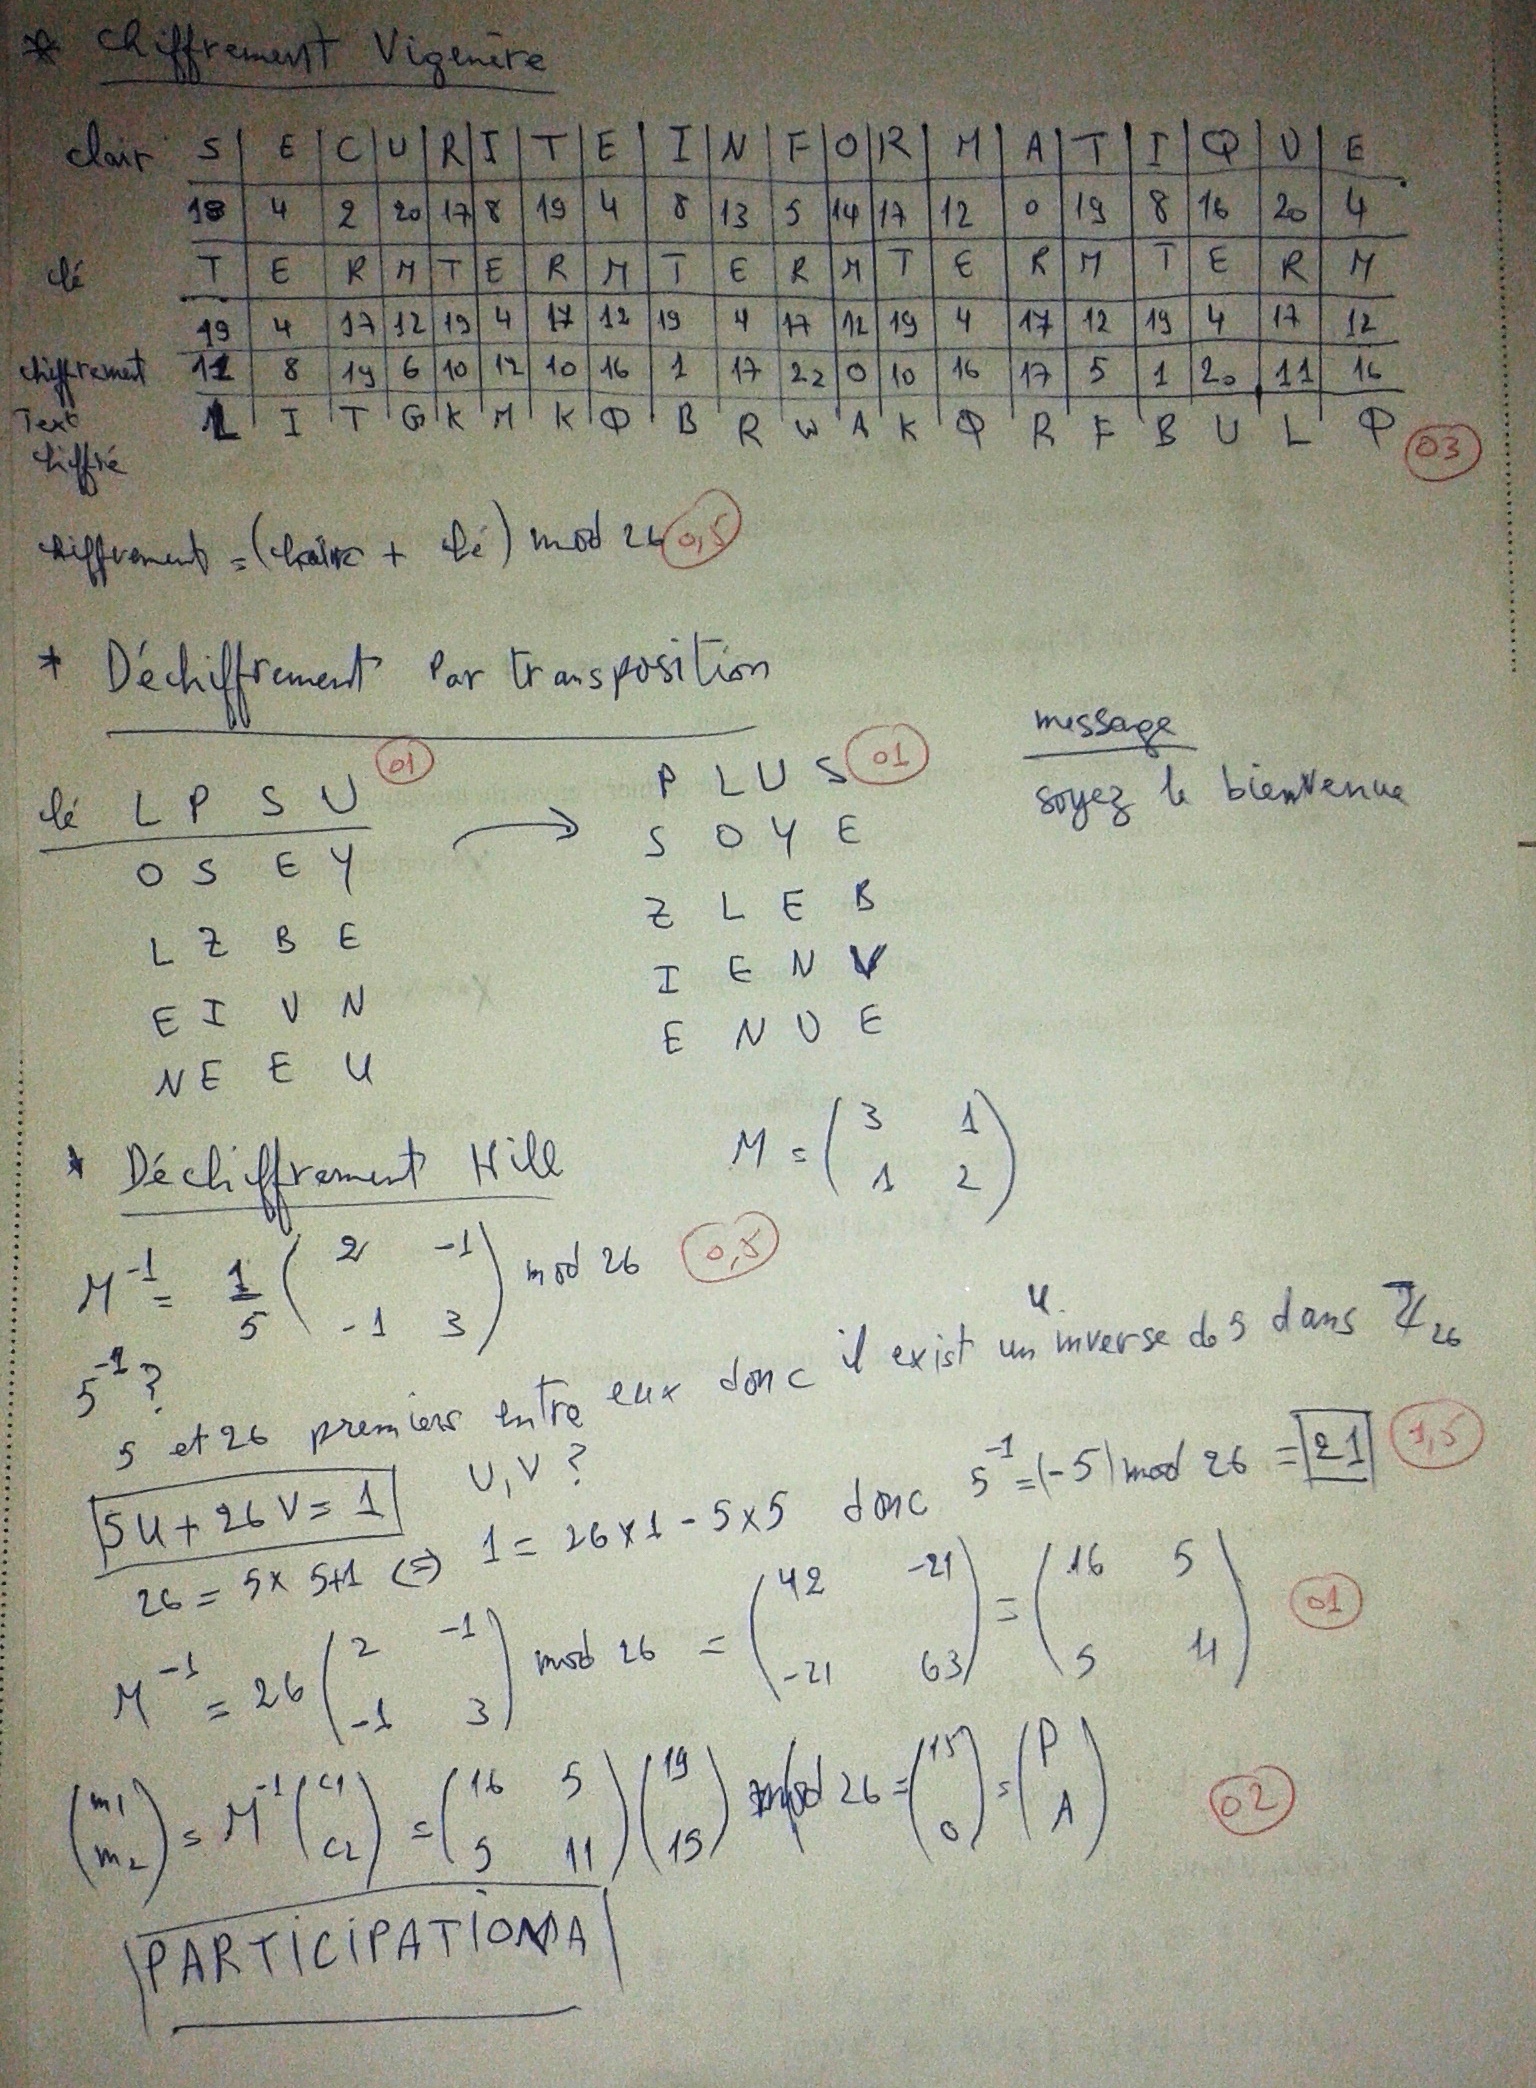 * Chiffrement Vigenère
clair S E C U R I T E I N F O R M A T I Q U E
18 4 2 20 17 8 19 4 8 13 5 14 17 12 0 19 8 16 20 4
clé T E R M T E R M T E R M T E R M T E R M
19 4 17 12 19 4 17 12 19 4 17 12 19 4 17 12 19 4 17 12
chiffrement 11 8 19 6 10 12 10 16 1 17 22 0 10 16 17 5 1 20 11 16
Text chiffré L I T G K M K Q B R W A K Q R F B U L Q 03
chiffrement = (clair + clé) mod 26 0,5
* Déchiffrement Par transposition
message
soyez le bienvenue
clé L P S U 01 → P L U S 01
O S E Y S O Y E
L Z B E Z L E B
E I V N I E N V
N E E U E N U E
* Déchiffrement Hill M = (3 1
1 2)
M⁻¹ = 1/5 (2 -1
-1 3) mod 26 0,5
5⁻¹ ?
5 et 26 premiers entre eux donc il exist un inverse de 5 dans ℤ₂₆
U, V ?
5U + 26V = 1
26 = 5x 5+1 (=) 1 = 26x1 - 5x5 donc 5⁻¹ = (-5) mod 26 = 21 1,5
M⁻¹ = 26 (2 -1
-1 3) mod 26 = (42 -21
-21 63) = (16 5
5 11) 01
(m1
m2) = M⁻¹ (c1
c2) = (16 5
5 11) (19
15) mod 26 = (15
0) = (P
A) 02
PARTICIPATIONA